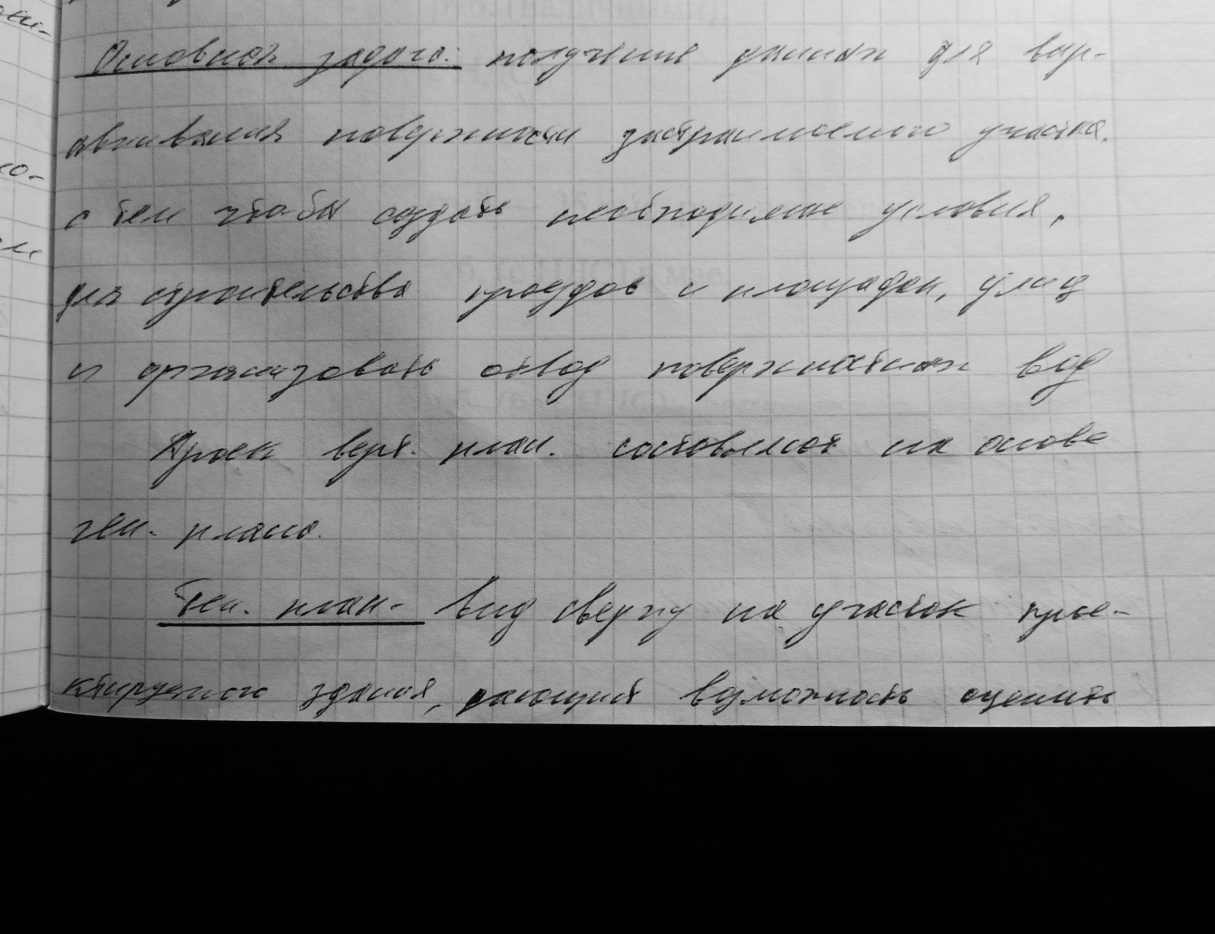 Основная задача: получение данных для выр-
авнивания поверхности застраиваемого участка.
с тем чтобы создать необходимые условия,
для строительства проездов и площадок, улиц
и организовать отвод поверхностных вод
Проек верт. план. составляют на основе
ген. плана.
Ген. план- вид сверху на участок прое-
ктируемого здания, дающий возможность оценить